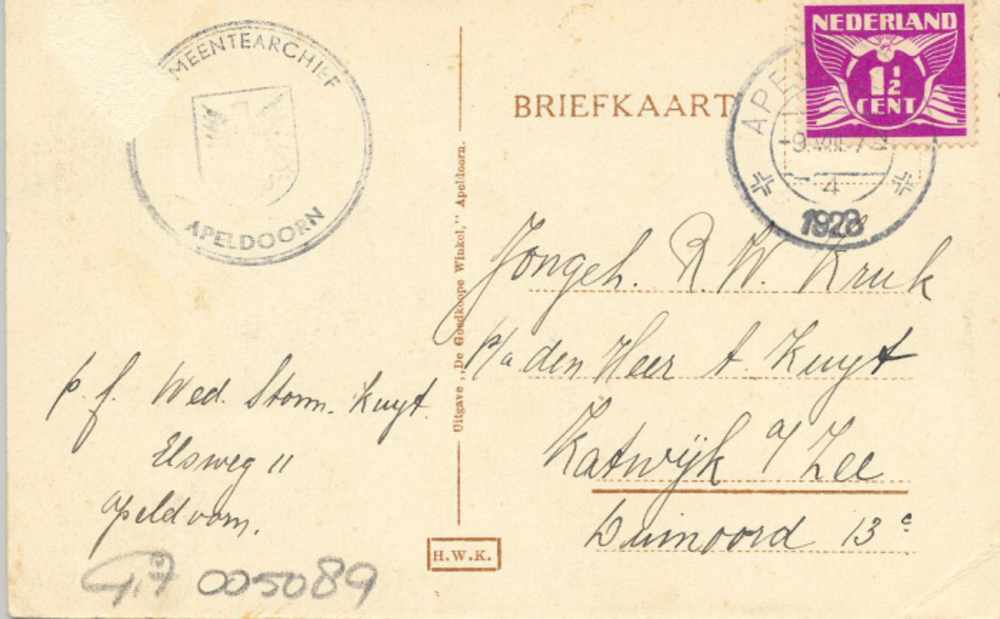 GEMEENTEARCHIEF
APELDOORN
BRIEFKAART
NEDERLAND
1½
CENT
APE
9.VIII.7
4
1928
Uitgave „De Goedkoope Winkel,” Apeldoorn.
H.W.K.
Jongeh. R. W. Kruk
p/a den Heer A. Kuyt
Katwijk a/ Zee
Duinoord 13c
p. f. Wed. Storm. Kuyt.
Elsweg 11
Apeldoorn.
005089